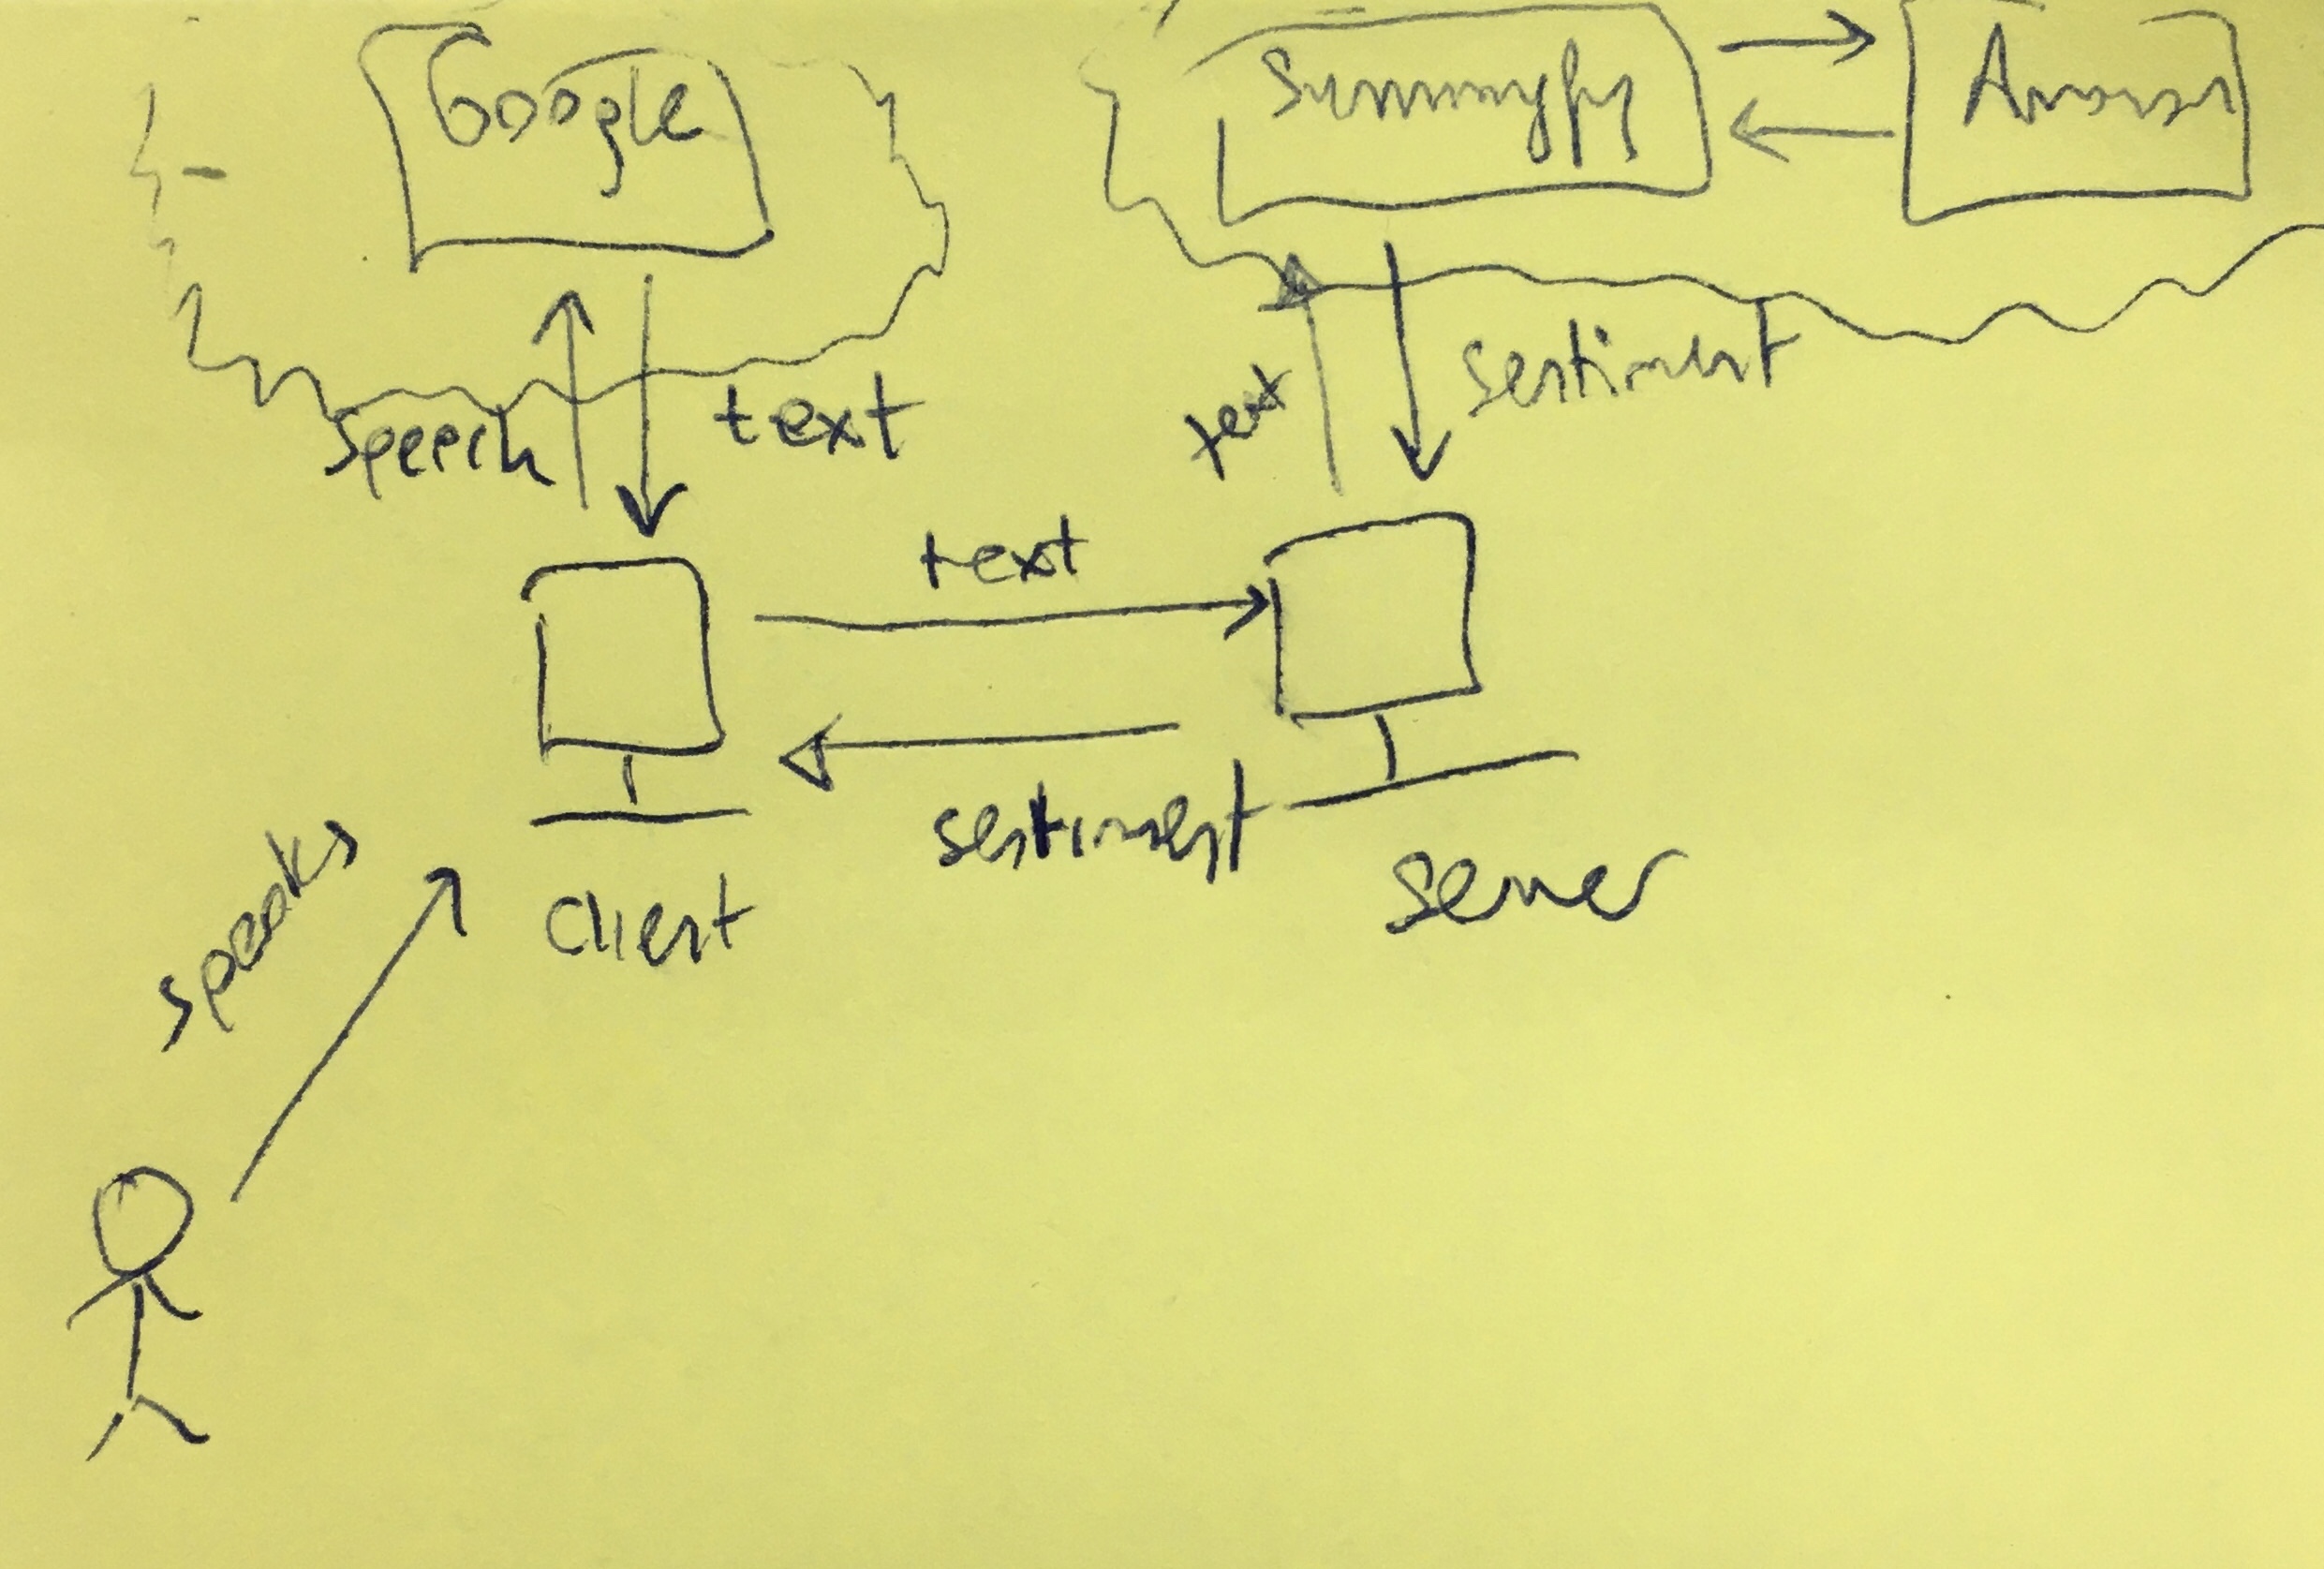 Google
speech
text
text
sentiment
text
sentiment
client
server
speaks